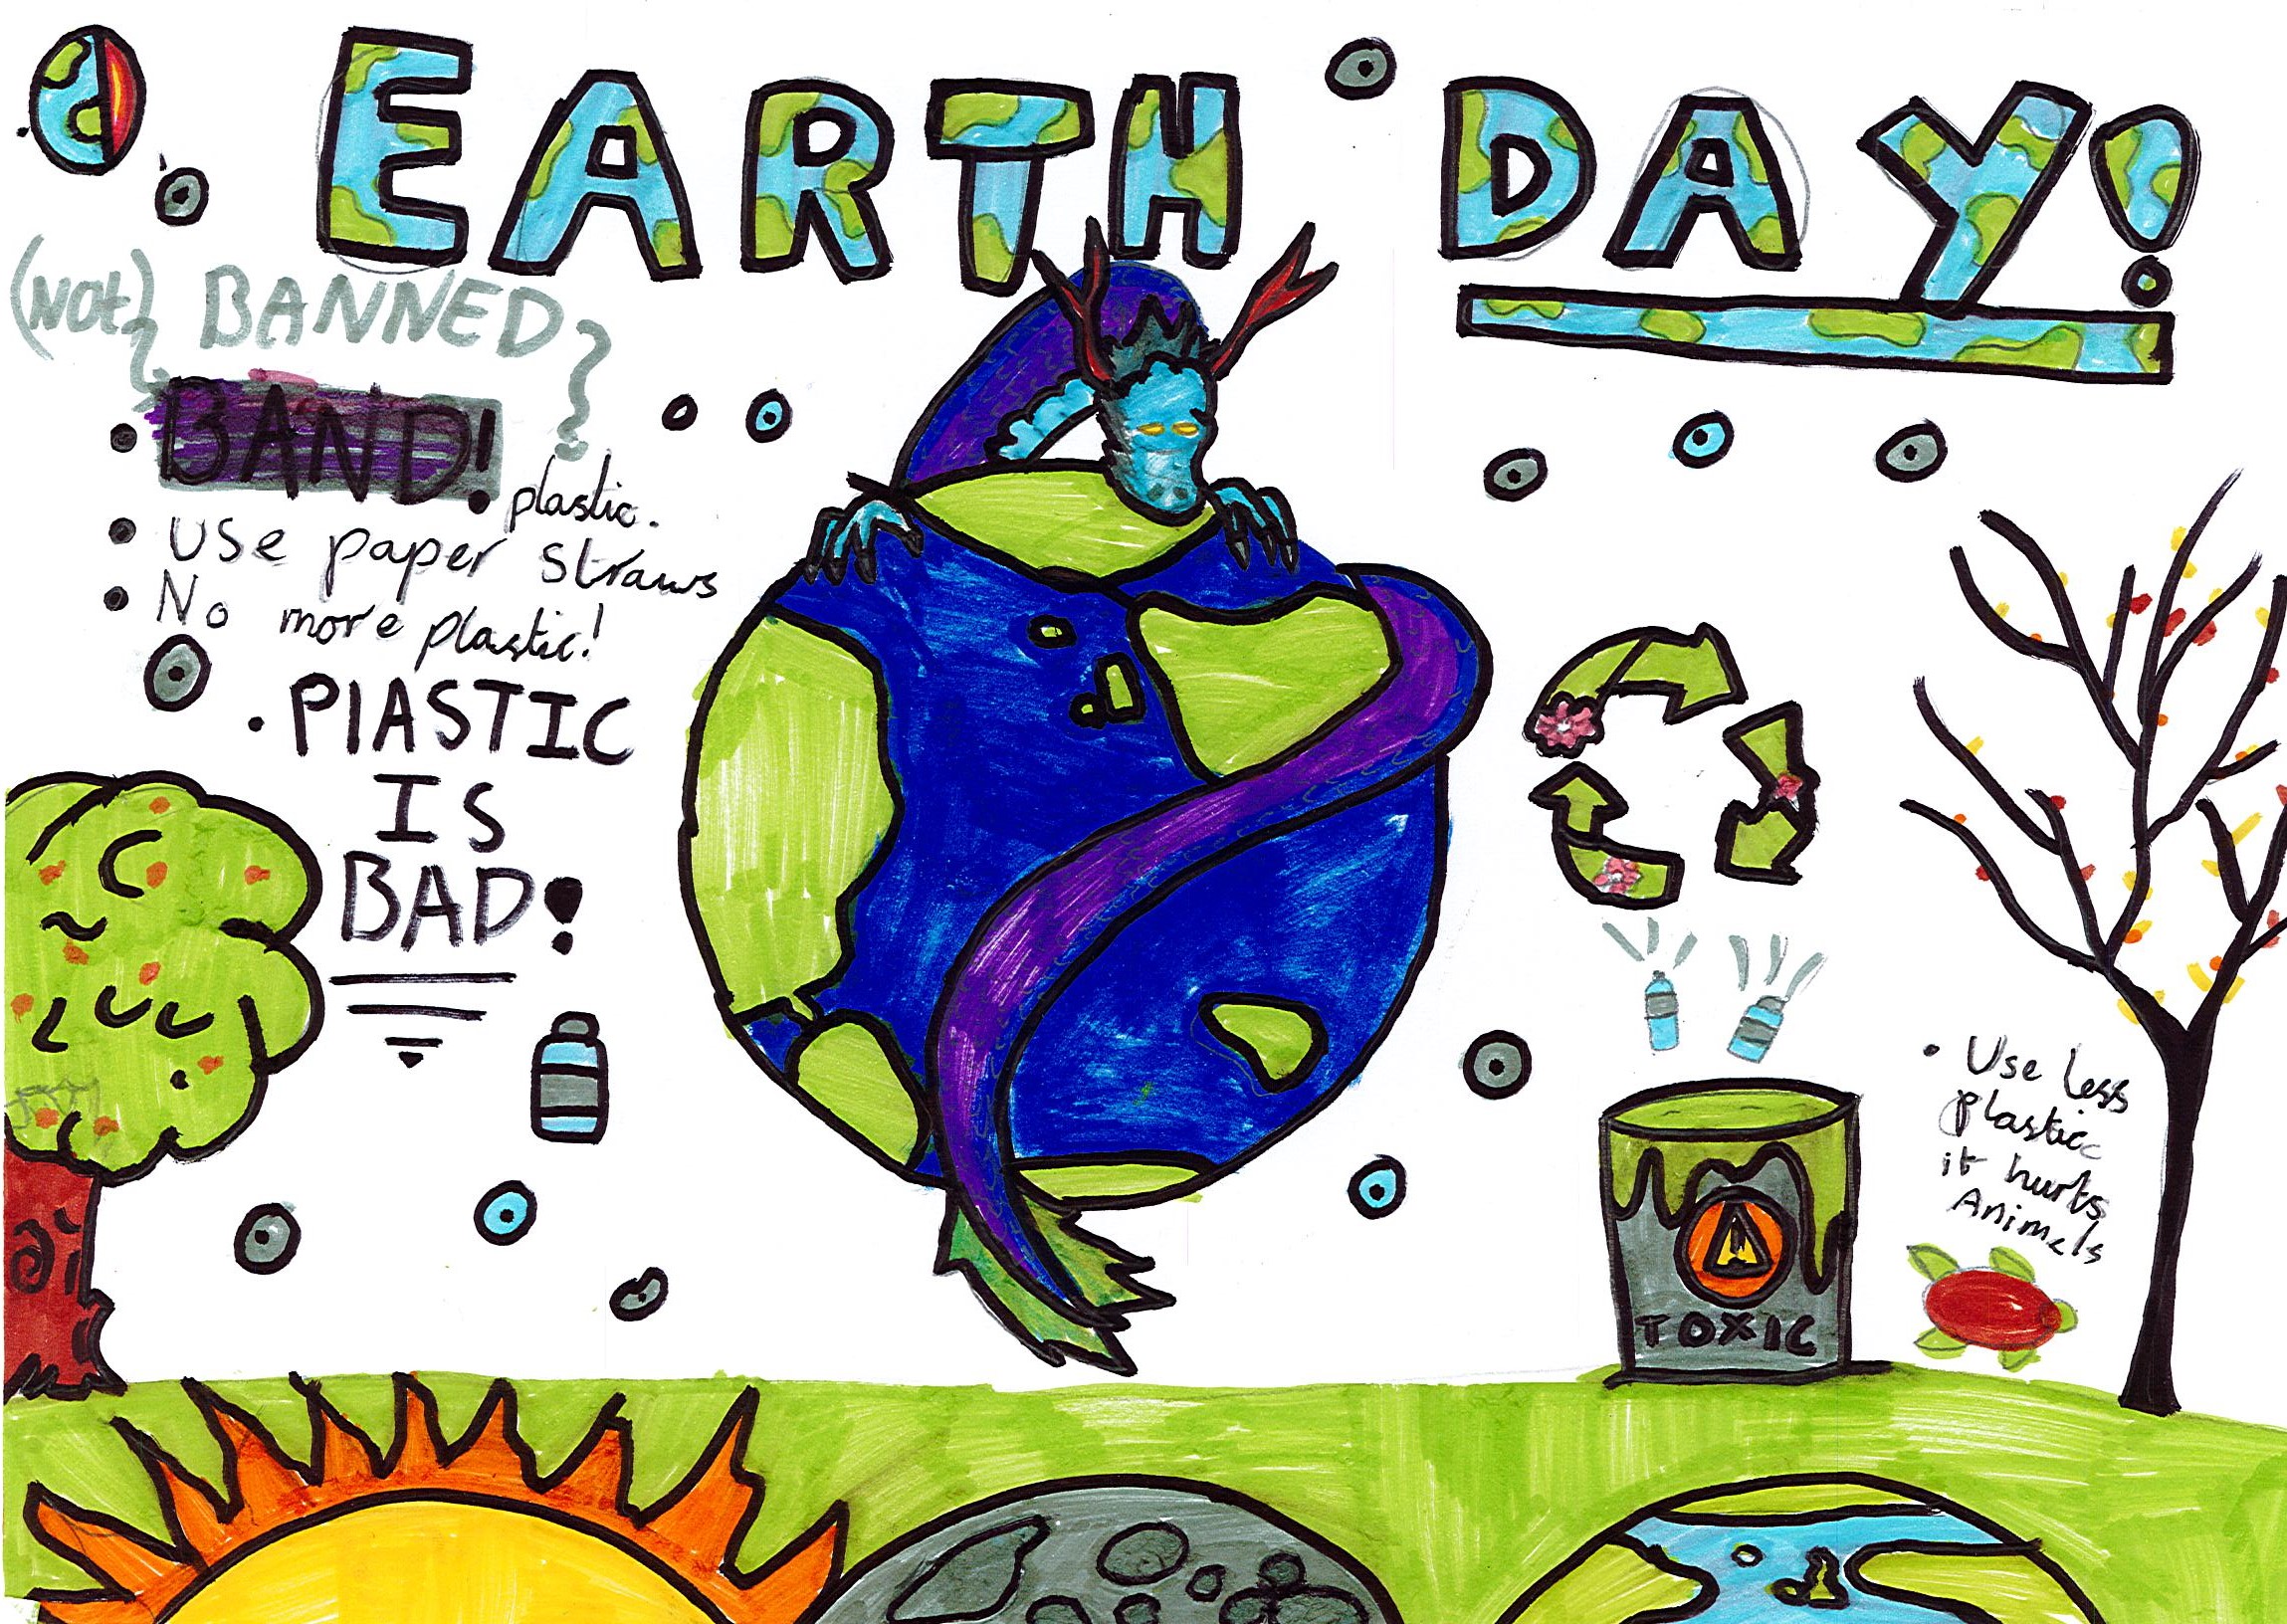 EARTH DAY!
(NOt) BANNED
BAND!
plastic.
Use paper straws
No more plastic!
PlASTIC
IS
BAD!
TOXIC
Use less
plastic
it hurts
Animals